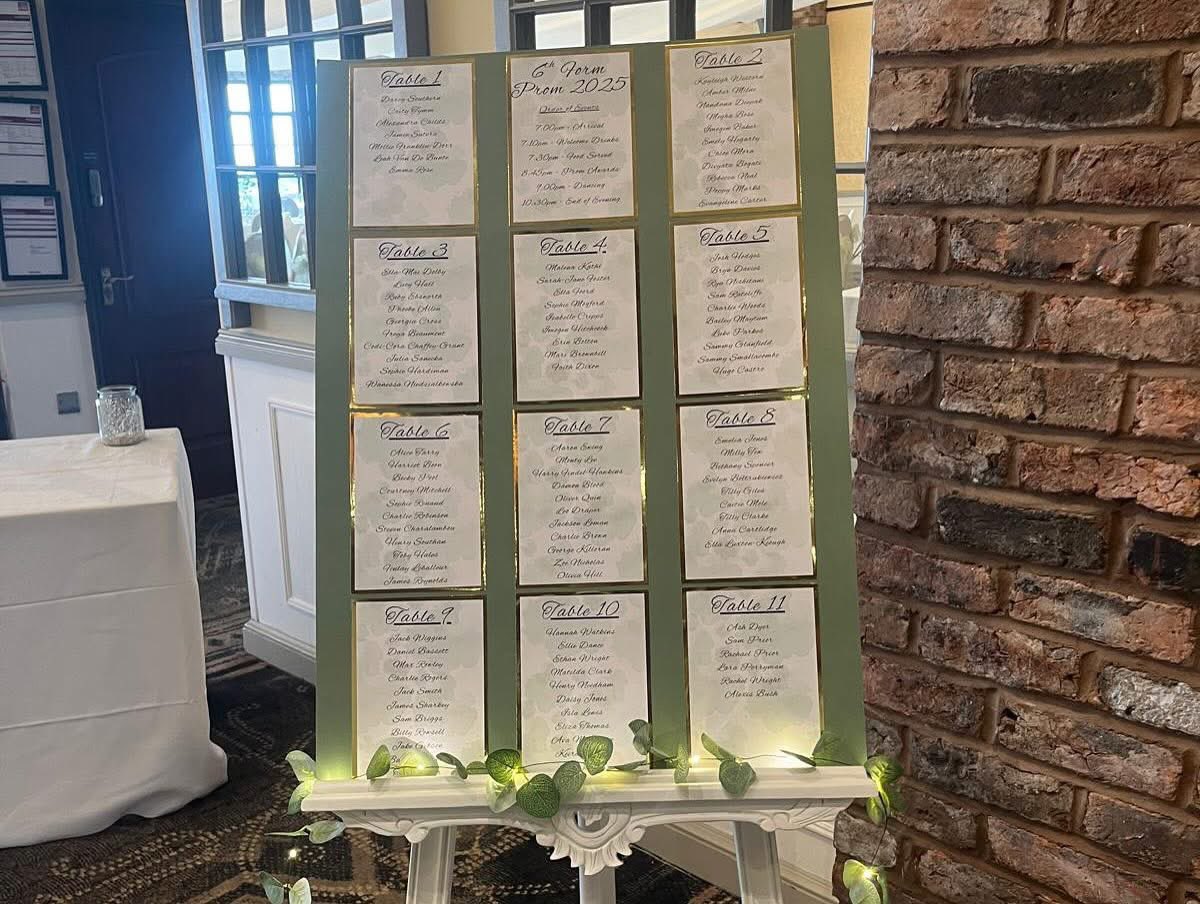 Table 1
Darcy Southern
Caity Tymm
Alexandra Childs
Jamie Suture
Mollie Franklin-Dorr
Leah Van De Bunte
Emma Rose
6th Form
Prom 2025
Order of Events
7.00pm - Arrival
7.10pm - Welcome Drinks
7.30pm - Food Served
8.45pm - Prom Awards
9.00pm - Dancing
10.30pm - End of Evening
Table 2
Kayleigh Western
Amber Milne
Nandana Deepak
Megha Bose
Imogen Baker
Emily Hegarty
Chloe Mora
Divyata Bogati
Rebecca Neal
Poppy Marks
Evangeline Carter
Table 3
Ella-Mae Dolby
Lucy Hall
Ruby Ebsworth
Phoebe Allen
Georgia Cross
Freya Beaumont
Codi-Cora Chaffey-Grant
Julia Sanecka
Sophie Hardiman
Wanessa Niedzialkowska
Table 4
Malena Karai
Sarah-Jane Foster
Ella Ford
Sophie Mayford
Isabelle Cripps
Imogen Hitchcock
Erin Bolton
Mari Brownbill
Faith Dixon
Table 5
Josh Hodges
Bryn Davies
Ryu Nishitani
Sam Ratcliffe
Charlie Woods
Bailey Mayhum
Luke Parker
Sammy Glanfield
Sammy Smallacombe
Hugo Castro
Table 6
Alice Tarry
Harriet Bion
Becky Peel
Courtney Mitchell
Sophie Renaud
Charlie Robinson
Steven Charalambou
Henry Southan
Toby Hales
Finlay Laballour
James Reynolds
Table 7
Aaron Ewing
Monty Lee
Harry Findel-Hawkins
Damon Blood
Oliver Quin
Leo Draper
Jackson Loman
Charlie Brown
George Killoran
Zoe Nicholas
Olivia Hill
Table 8
Emelia Jones
Milly Fox
Bethany Spencer
Evelyn Beltrakiewicz
Tilly Giles
Caitie Mole
Tilly Clarke
Anna Cartlidge
Ella Luxton-Keough
Table 9
Jack Wiggins
Daniel Bassett
Max Rowley
Charlie Rogers
Jack Smith
James Sharkey
Sam Briggs
Billy Rowsell
Jake Gibson
Table 10
Hannah Watkins
Ellie Dance
Ethan Wright
Matilda Clark
Henry Needham
Daisy Jones
Isla Lewis
Eliza Thomas
Ava
Table 11
Ash Dyer
Sam Prior
Rachael Prior
Lara Perryman
Rachel Wright
Alexis Bush